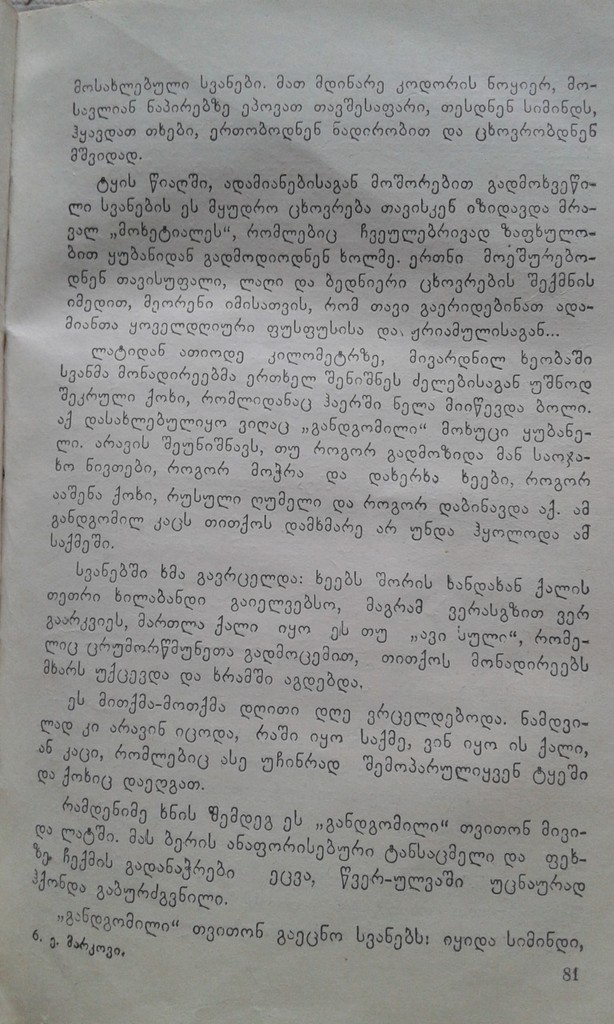 მოსახლებული სვანები. მათ მდინარე კოდორის ნოყიერ, მო-
სავლიან ნაპირებზე ეპოვათ თავშესაფარი, თესდნენ სიმინდს,
ჰყავდათ თხები, ერთობოდნენ ნადირობით და ცხოვრობდნენ
მშვიდად.
ტყის წიაღში, ადამიანებისაგან მოშორებით გადმოხვეწი-
ლი სვანების ეს მყუდრო ცხოვრება თავისკენ იზიდავდა მრა-
ვალ „მოხეტიალეს“, რომლებიც ჩვეულებრივად ზაფხულო-
ბით ყუბანიდან გადმოდიოდნენ ხოლმე. ერთნი მოეშურებო-
დნენ თავისუფალი, ლაღი და ბედნიერი ცხოვრების შექმნის
იმედით, მეორენი იმისათვის, რომ თავი გაერიდებინათ ადა-
მიანთა ყოველდღიური ფუსფუსისა და ჟრიამულისაგან...
ლატიდან ათიოდე კილომეტრზე, მივარდნილ ხეობაში
სვანმა მონადირეებმა ერთხელ შენიშნეს ძელებისაგან უშნოდ
შეკრული ქოხი, რომლიდანაც ჰაერში ნელა მიიწევდა ბოლი.
აქ დასახლებულიყო ვიღაც „განდგომილი“ მოხუცი ყუბანე-
ლი. არავის შეუნიშნავს, თუ როგორ გადმოზიდა მან საოჯა-
ხო ნივთები, როგორ მოჭრა და დახერხა ხეები, როგორ
ააშენა ქოხი, რუსული ღუმელი და როგორ დაბინავდა აქ. ამ
განდგომილ კაცს თითქოს დამხმარე არ უნდა ჰყოლოდა ამ
საქმეში.
სვანებში ხმა გავრცელდა: ხეებს შორის ხანდახან ქალის
თეთრი ხილაბანდი გაიელვებსო, მაგრამ ვერასგზით ვერ
გაარკვიეს, მართლა ქალი იყო ეს თუ „ავი სული“, რომე-
ლიც ცრუმორწმუნეთა გადმოცემით, თითქოს მონადირეებს
მხარს უქცევდა და ხრამში აგდებდა.
ეს მითქმა-მოთქმა დღითი დღე ვრცელდებოდა. ნამდვი-
ლად კი არავინ იცოდა, რაში იყო საქმე, ვინ იყო ის ქალი,
ან კაცი, რომლებიც ასე უჩინრად შემოპარულიყვენ ტყეში
და ქოხიც დაედგათ.
რამდენიმე ხნის შემდეგ ეს „განდგომილი“ თვითონ მივი-
და ლატში. მას ბერის ანაფორისებური ტანსაცმელი და ფეხ-
ზე ჩექმის გადანაჭრები ეცვა, წვერ-ულვაში უცნაურად
ჰქონდა გაბურძგვნილი.
„განდგომილი“ თვითონ გაეცნო სვანებს: იყიდა სიმინდი,
6. ე. მარკოვი.
81